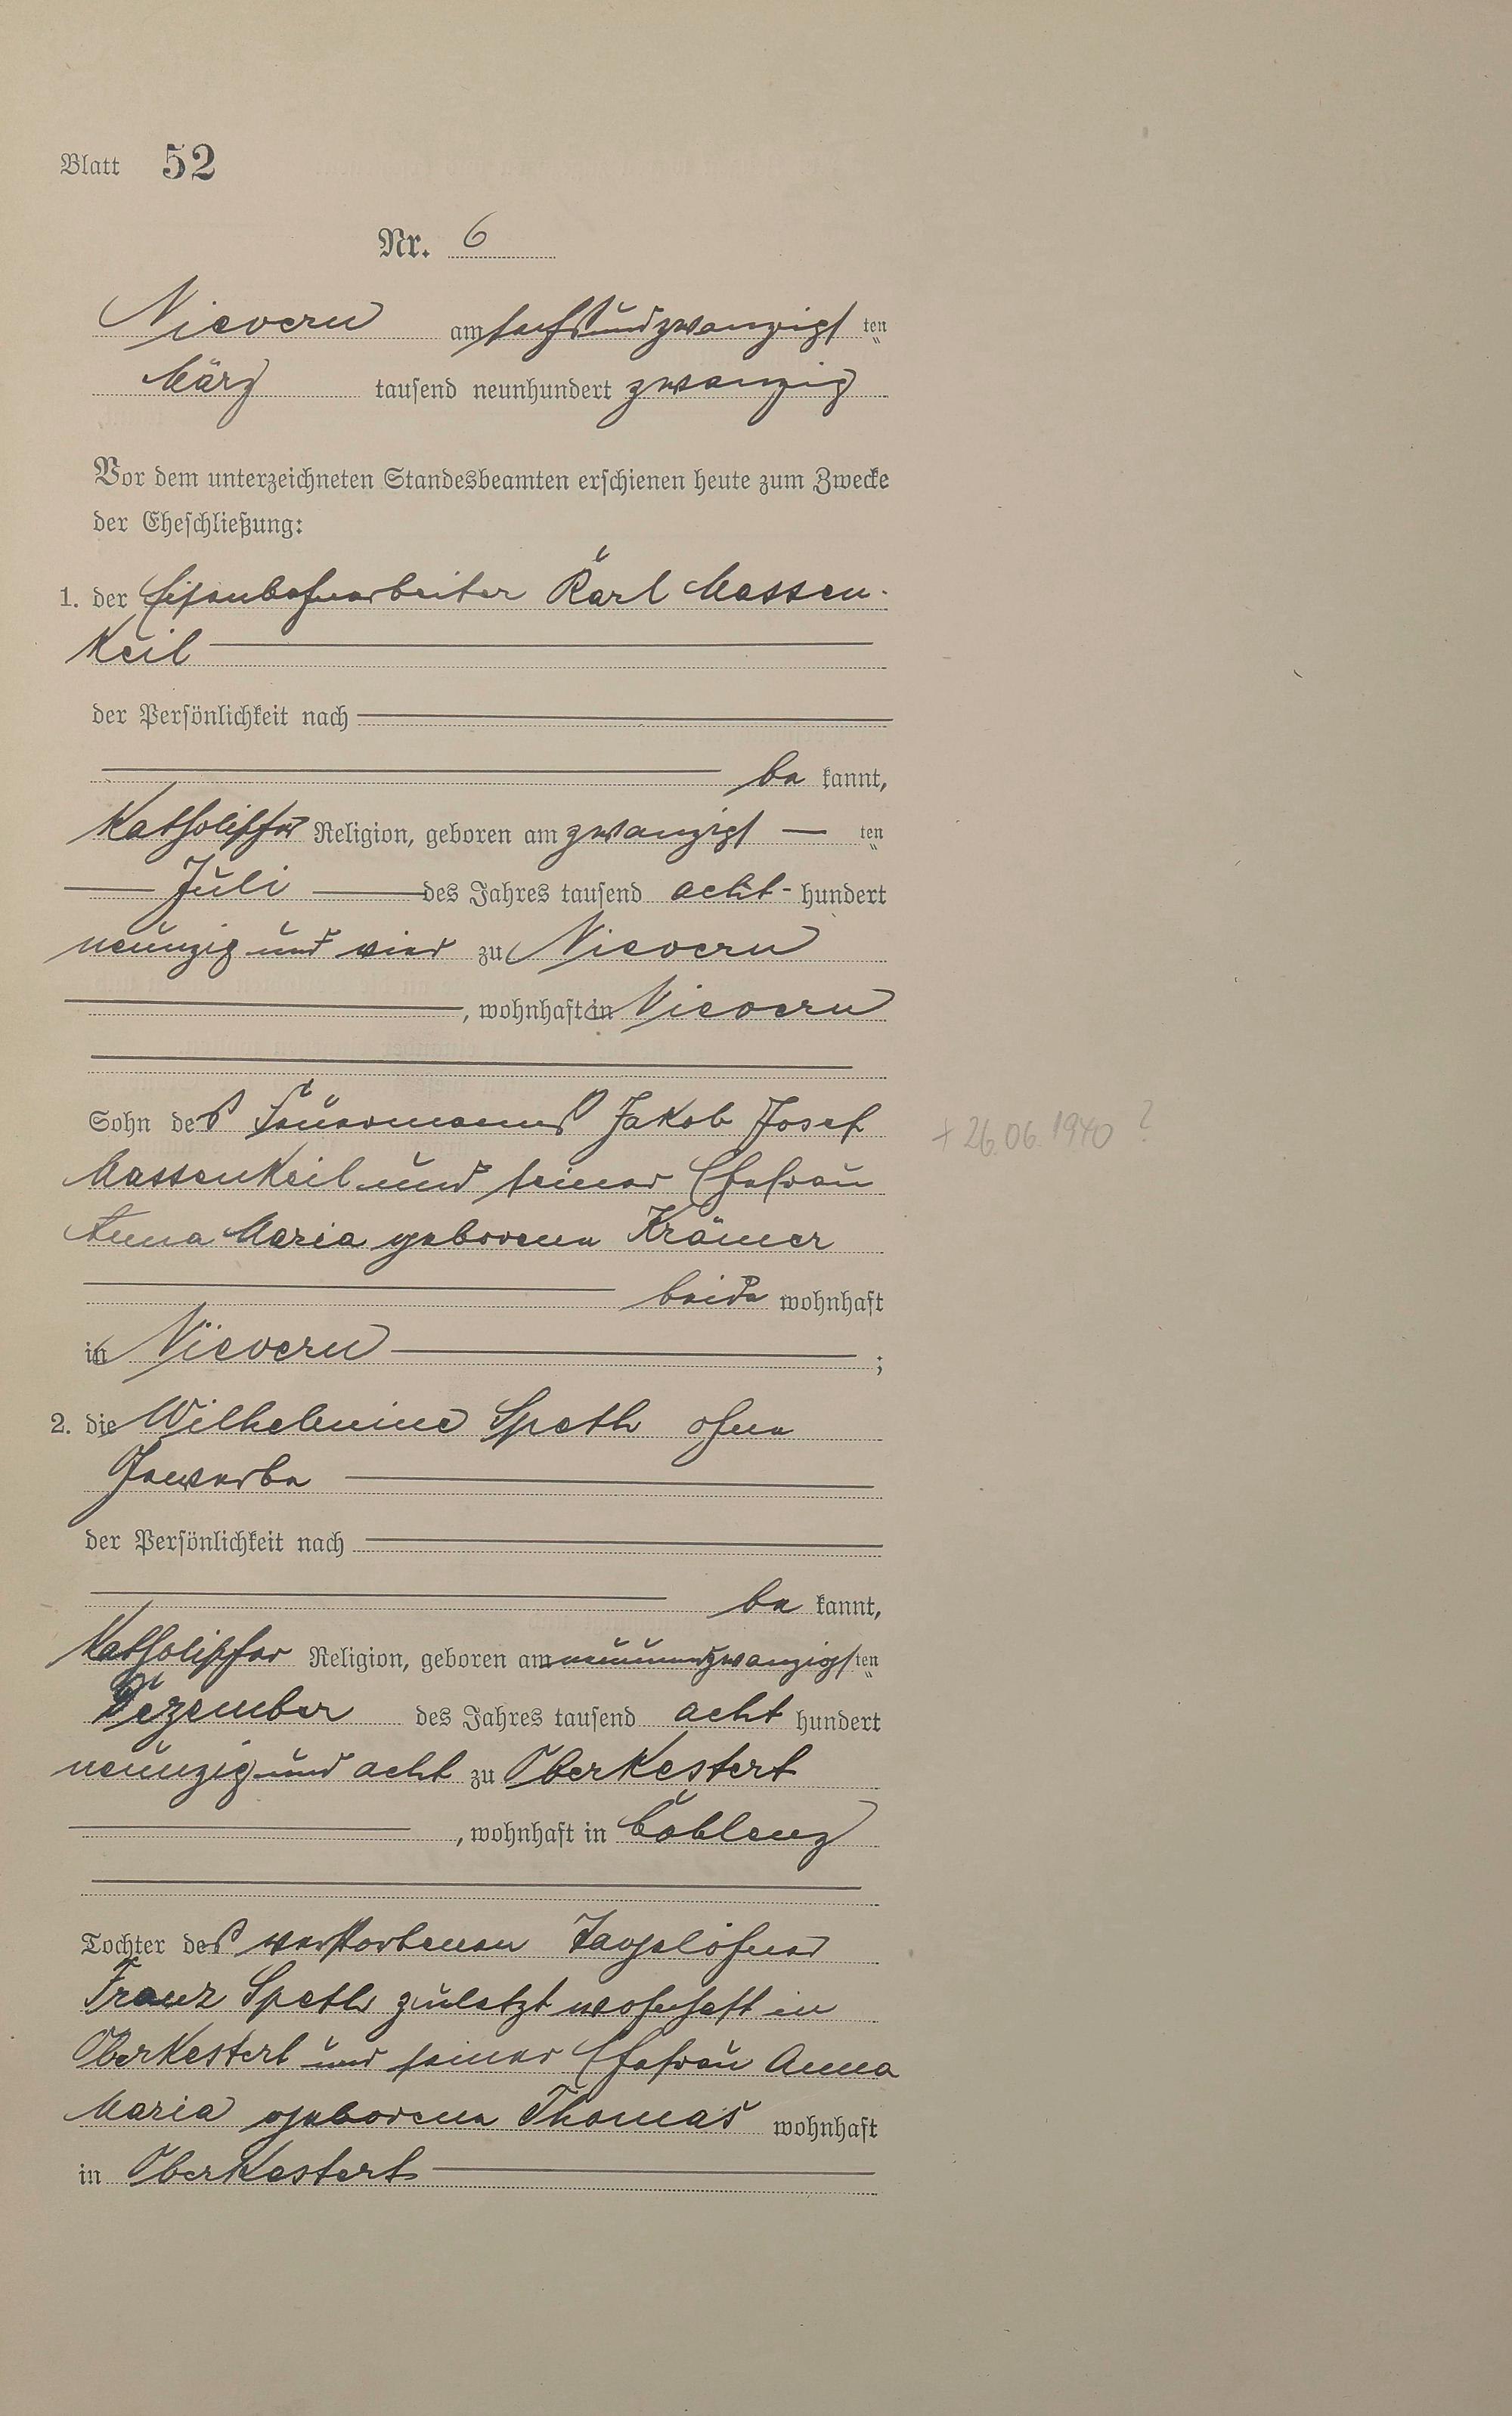 Blatt 52
Nr. 6
Nievern am sechsundzwanzigst ten
März tausend neunhundert zwanzig
Vor dem unterzeichneten Standesbeamten erschienen heute zum Zwecke
der Eheschließung:
1. der Eisenbahnarbeiter Karl Massen-
keil
der Persönlichkeit nach
be kannt,
katholischer Religion, geboren am zwanzigst ten
Juli des Jahres tausend acht- hundert
neunzig und vier zu Nievern
, wohnhaft in Nievern
Sohn des Jakob Josef
Massenkeil und seiner Ehefrau
Anna Maria geborene Krämer
beide wohnhaft
in Nievern ;
2. die Wilhelmine Speth ohne
Gewerbe
der Persönlichkeit nach
be kannt,
katholischer Religion, geboren am neunundzwanzigsten
Dezember des Jahres tausend acht hundert
neunzig und acht zu Oberkestert
, wohnhaft in Coblenz
Tochter des verstorbenen Tagelöhner
Franz Speth zuletzt wohnhaft in
Oberkestert und seiner Ehefrau Anna
Maria geborene Thomas wohnhaft
in Oberkestert
+ 26.06.1940 ?